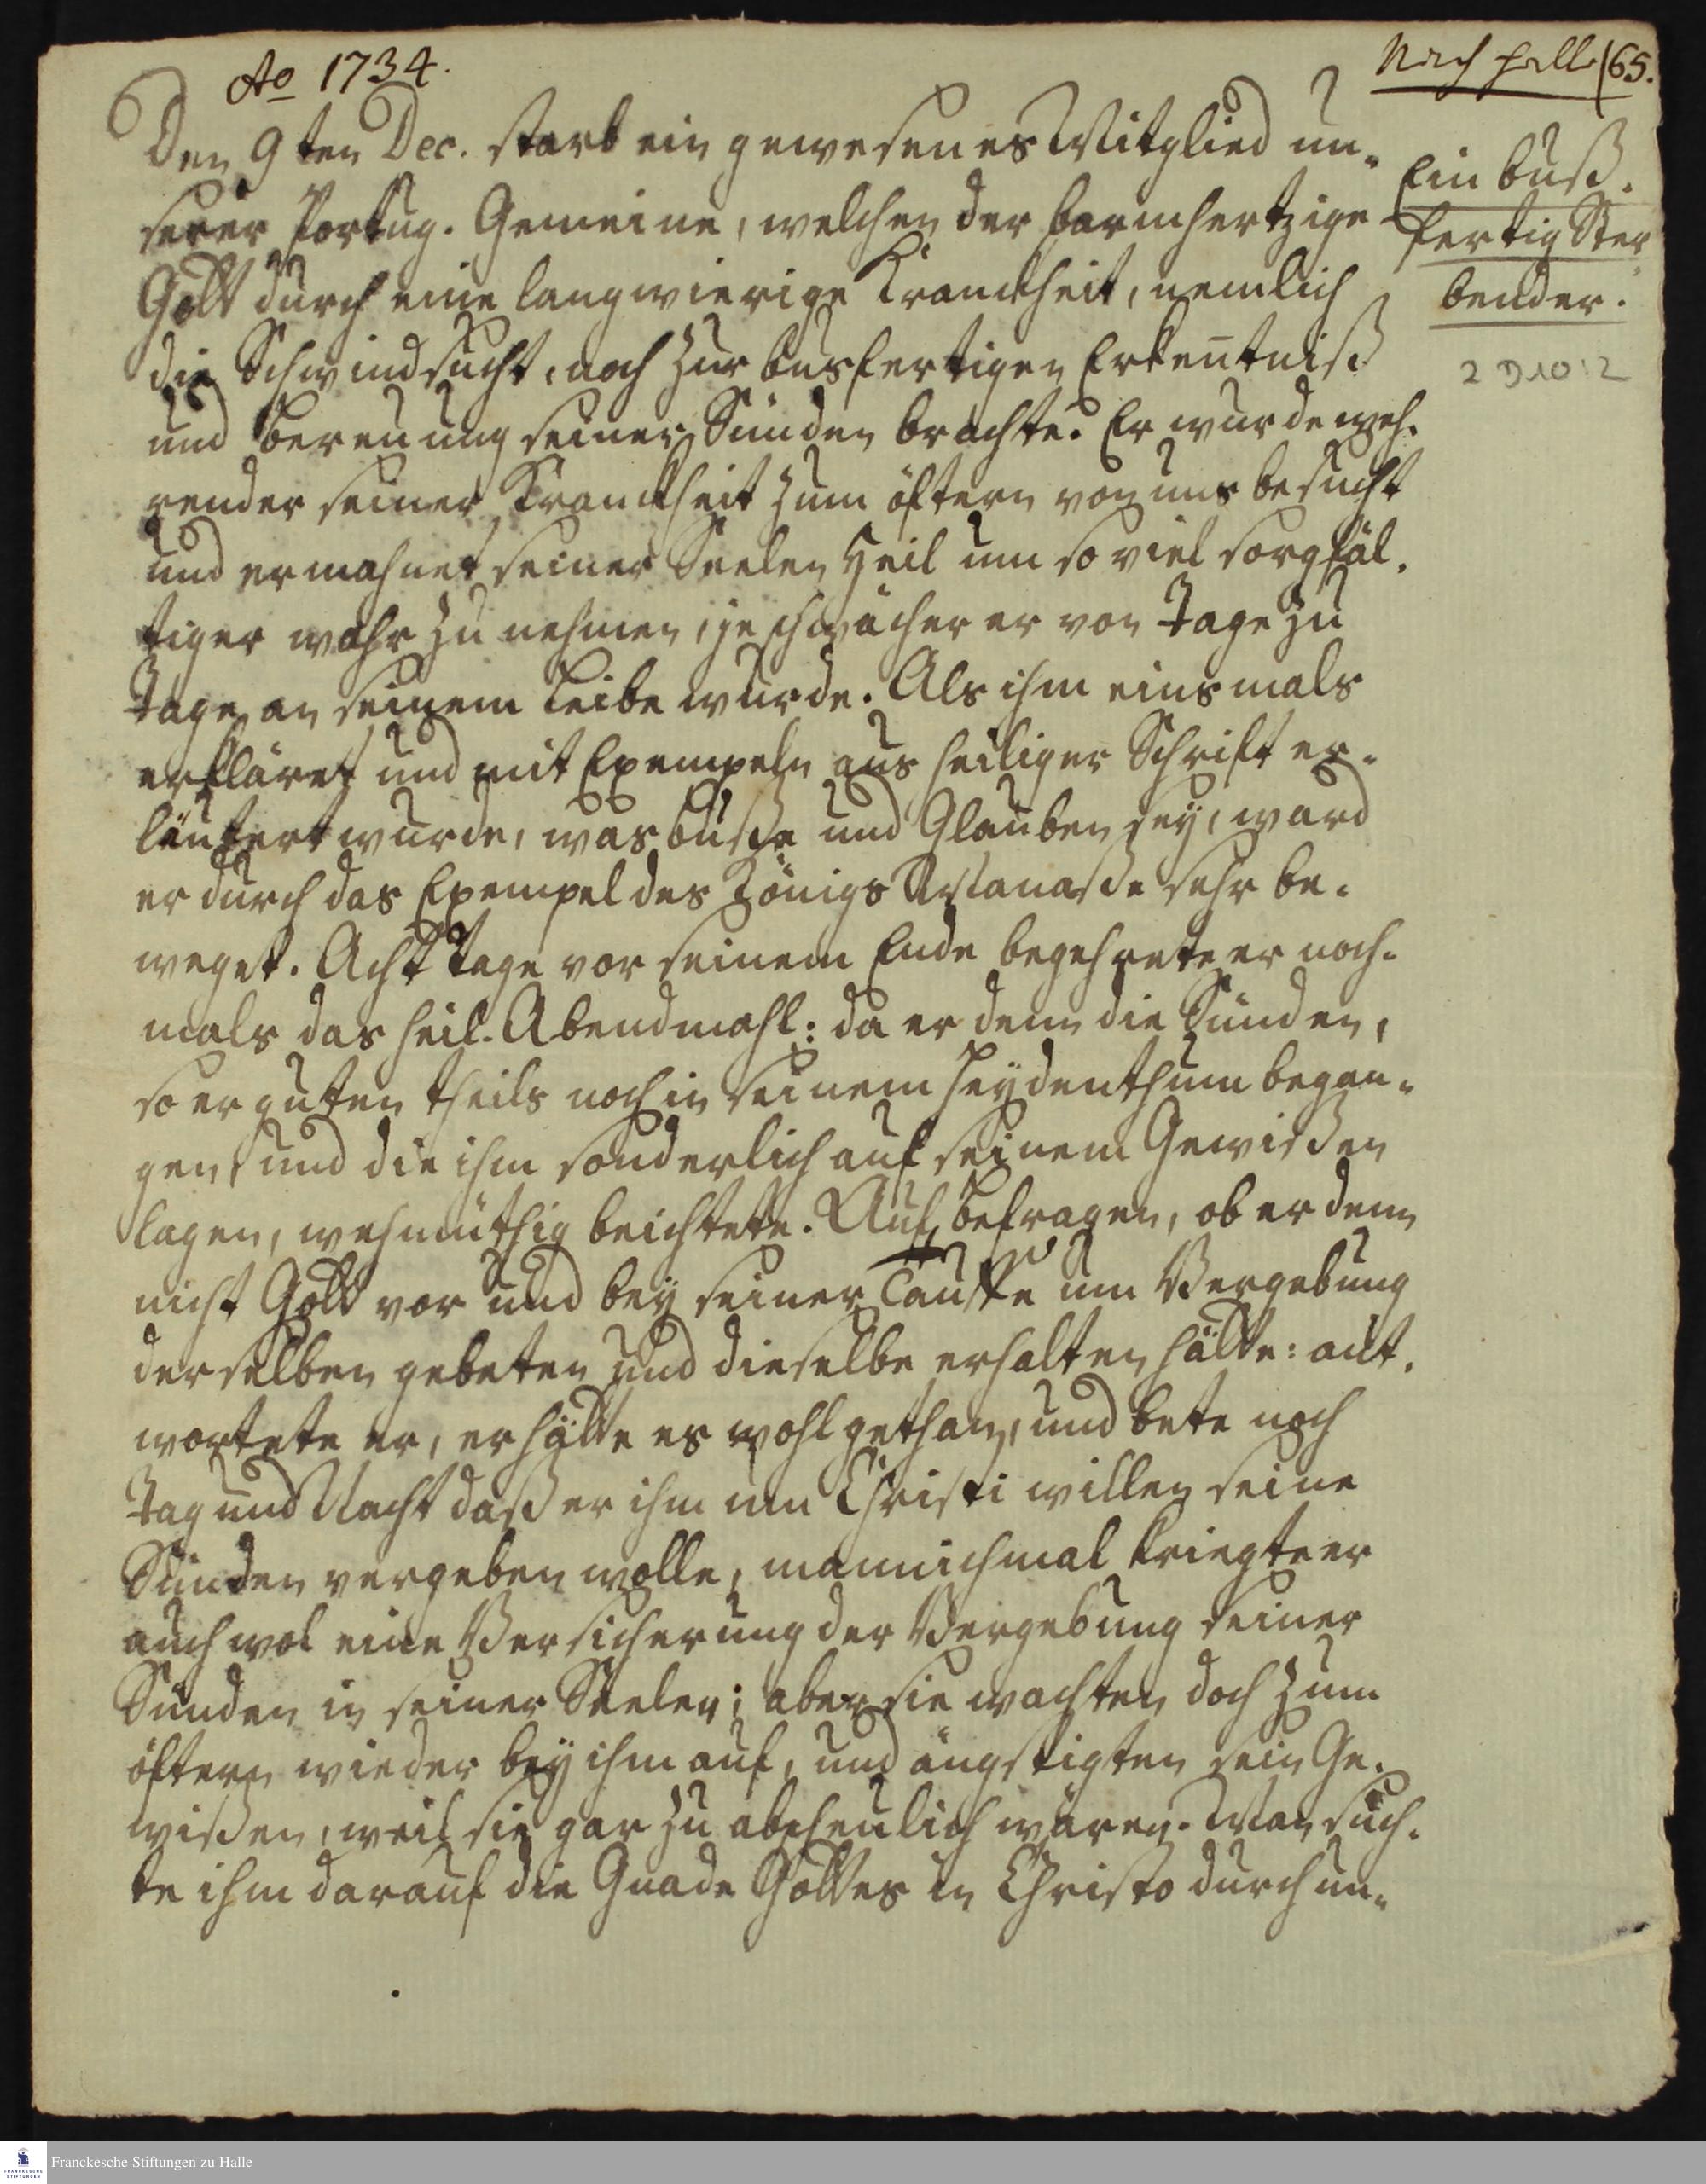 Ao 1734.
Nach Halle (65.
Den 9ten Dec. starb ein gewesenes Mitglied un-
serer Portug. Gemeine, welchen der barmhertzige
Gott durch eine langwierige Kranckheit, nemlich
die Schwindsucht, noch zur busfertigen Erkentniß
und Bereuung seiner Sünden brachte. Er wurde weh-
render seiner Kranckheit zum öftern von uns besucht
und ermahnet seiner Seelen Heil um so viel sorgfäl-
tiger wahr zu nehmen, je schwächer er von Tage zu
Tage an seinem Leibe wurde. Als ihm einsmals
erkläret und mit Exempeln aus heiliger Schrift er-
läutert wurde, was Buße und Glauben sey, ward
er durch das Exempel des Königs Manaße sehr be-
weget. Acht Tage vor seinem Ende begehrete er noch-
mals das heil. Abendmahl: da er denn die Sünden,
so er guten theils noch in seinem Heydenthum began-
gen, und die ihm sonderlich auf seinem Gewißen
lagen, wehmüthig beichtete. Auf Befragen, ob er denn
nicht Gott vor und bey seiner Tauffe um Vergebung
derselben gebeten und dieselbe erhalten hätte: ant-
wortete er, er hätte es wohl gethan, und bete noch
Tag und Nacht daß er ihm um Christi willen seine
Sünden vergeben wolle, mannichmal kriegte er
auch wol eine Versicherung der Vergebung seiner
Sünden in seiner Seelen; aber sie wachten doch zum
öftern wieder bey ihm auf, und ängstigten sein Ge-
wißen, weil sie gar zu abscheulich wären. Man such-
te ihm darauf die Gnade Gottes in Christo durch un-
Ein buß-
fertig Ster-
bender.
2 D10:2
Franckesche Stiftungen zu Halle
FRANCKESCHE
STIFTUNGEN